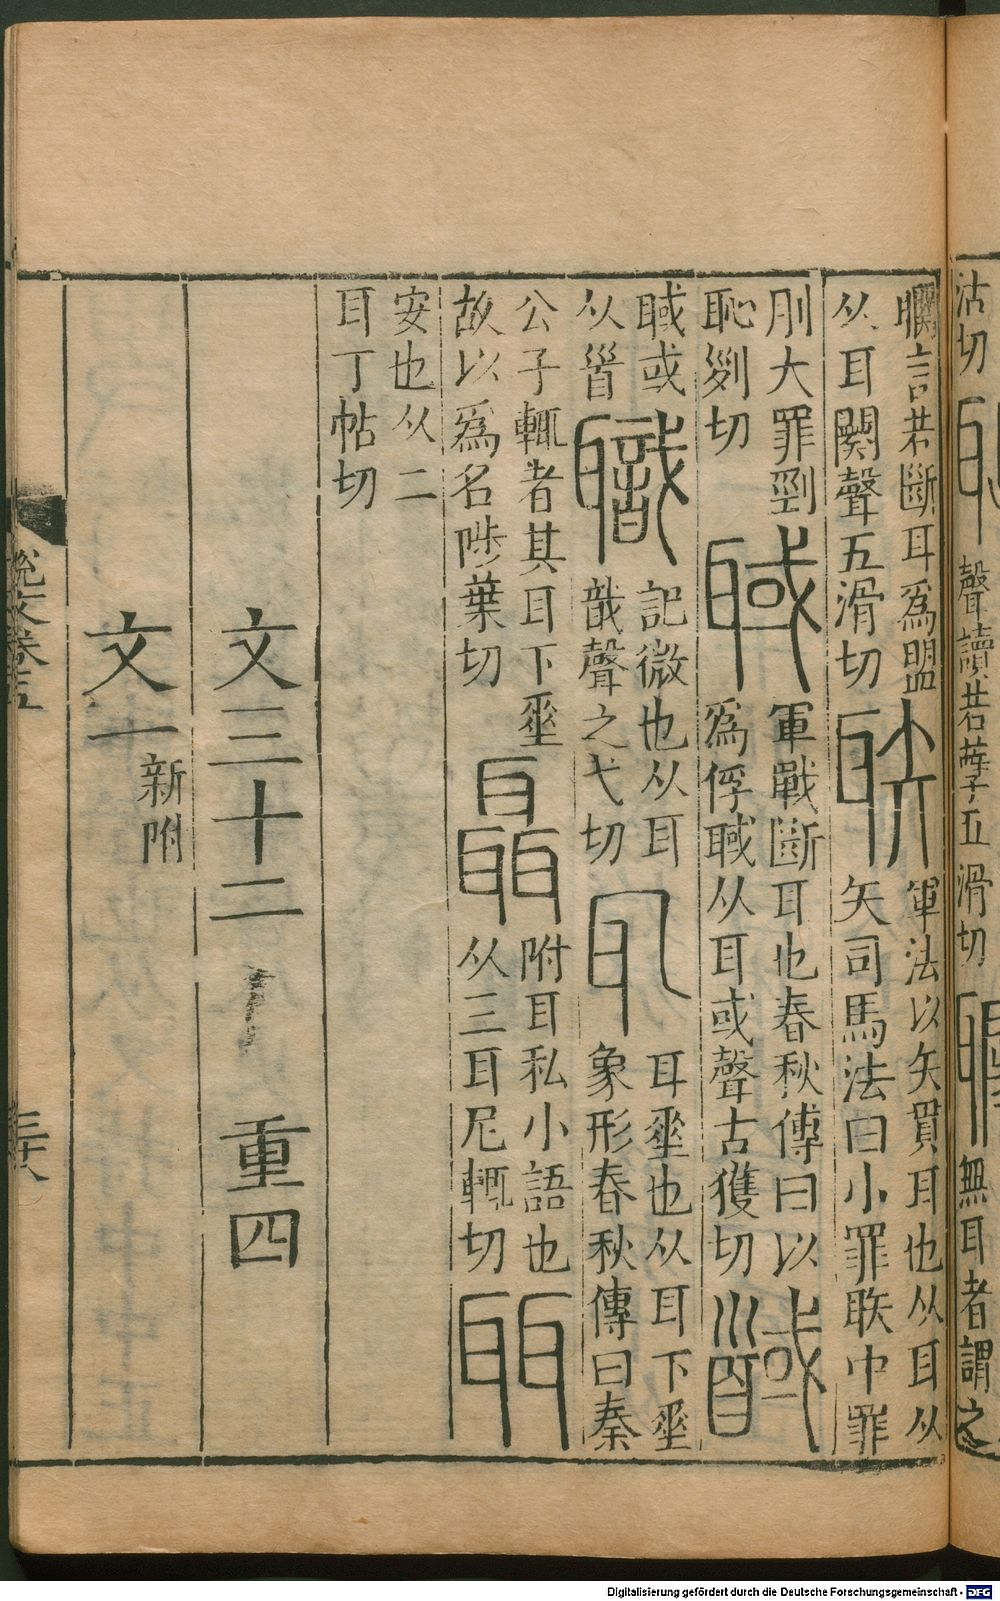 沽切
聲讀若孽五滑切
無耳者謂之
言若斷耳爲盟
从耳闋聲五滑切
聅
軍法以矢貫耳也从耳从
矢司馬法曰小罪聅中罪
刖大罪剄
恥列切
聝
軍戰斷耳也春秋傳曰以
爲俘聝从耳或聲古獲切
馘
聝或
从𩠐
職
記微也从耳
戠聲之弋切
耴
耳𠂹也从耳下𠂹
象形春秋傳曰秦
公子輒者其耳下𠂹
故以爲名陟葉切
聶
附耳私小語也
从三耳尼輒切
聑
安也从二
耳丁帖切
文三十二 重四
文一 新附
說文卷
三十八
Digitalisierung gefördert durch die Deutsche Forschungsgemeinschaft - DFG